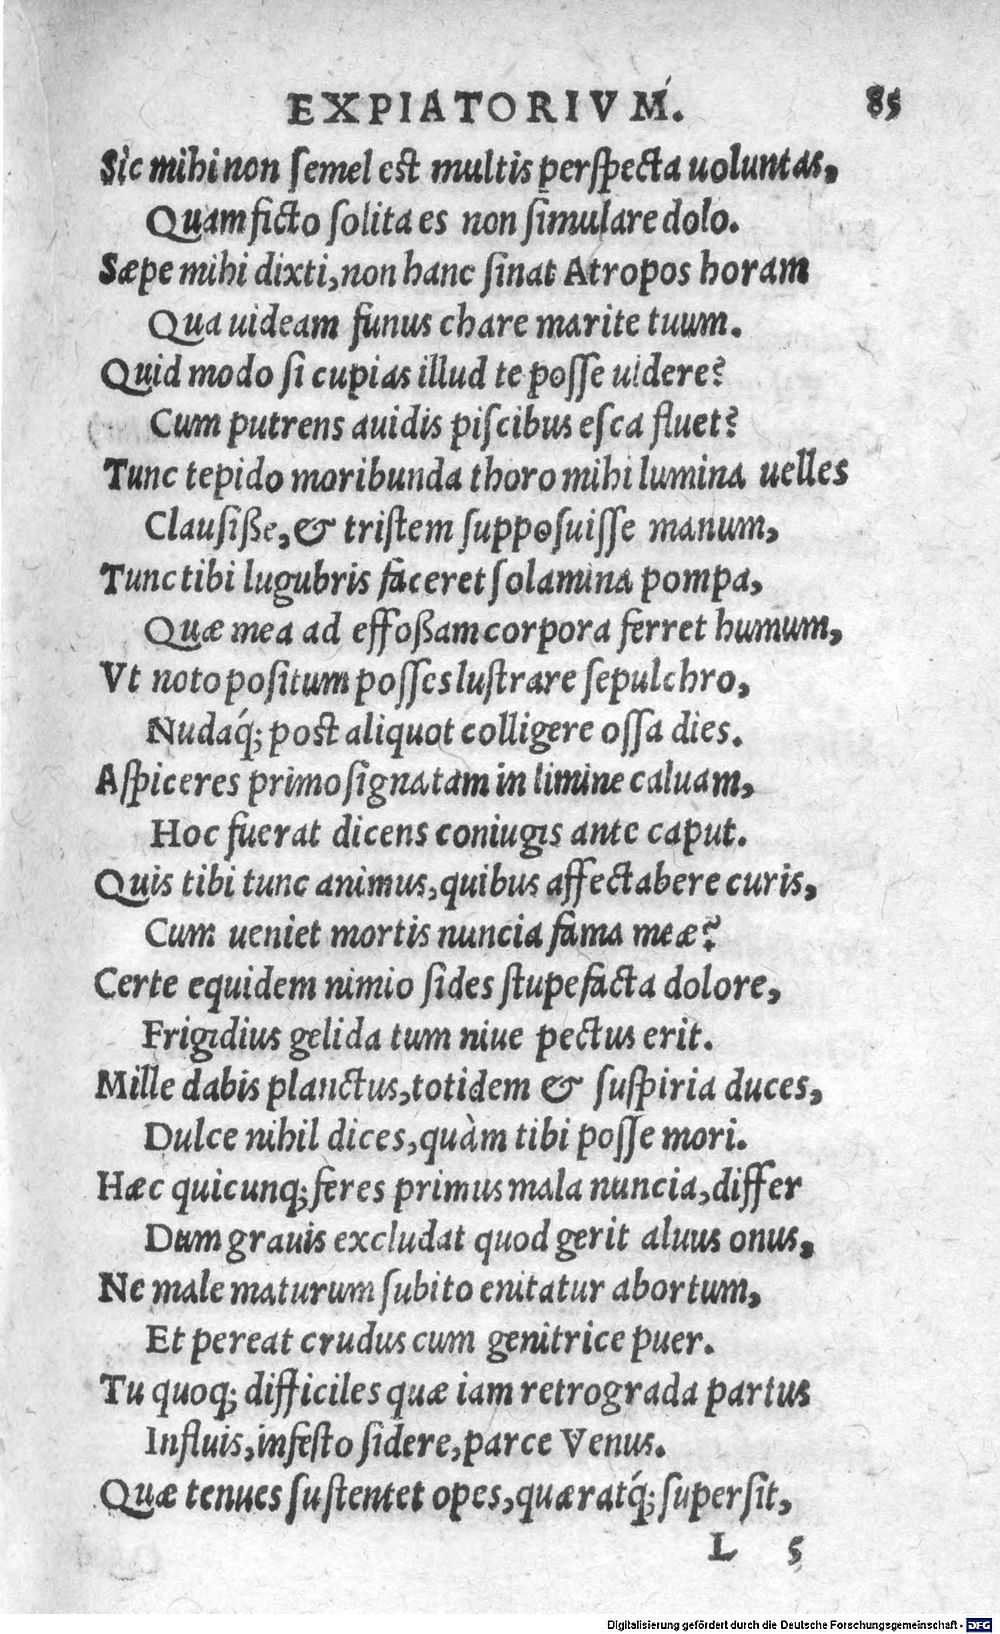 EXPIATORIVM. 85
Sic mihi non ſemel eſt multis perſpecta uoluntas,
Quam ficto ſolita es non ſimulare dolo.
Sæpe mihi dixti, non hanc ſinat Atropos horam
Qua uideam funus chare marite tuum.
Quid modo ſi cupias illud te poſſe uidere?
Cum putrens auidis piſcibus eſca fluet?
Tunc tepido moribunda thoro mihi lumina uelles
Clauſiße, & triſtem ſuppoſuiſſe manum,
Tunc tibi lugubris faceret ſolamina pompa,
Quæ mea ad effoßam corpora ferret humum,
Vt noto poſitum poſſes luſtrare ſepulchro,
Nudaq́; poſt aliquot colligere oſſa dies.
Aſpiceres primo ſignatam in limine caluam,
Hoc fuerat dicens coniugis ante caput.
Quis tibi tunc animus, quibus affectabere curis,
Cum ueniet mortis nuncia fama meæ?
Certe equidem nimio ſides ſtupefacta dolore,
Frigidius gelida tum niue pectus erit.
Mille dabis planctus, totidem & ſuſpiria duces,
Dulce nihil dices, quàm tibi poſſe mori.
Hæc quicunq; feres primus mala nuncia, differ
Dum grauis excludat quod gerit aluus onus,
Ne male maturum ſubito enitatur abortum,
Et pereat crudus cum genitrice puer.
Tu quoq; difficiles quæ iam retrograda partus
Influis, infeſto ſidere, parce Venus.
Quæ tenues ſuſtentet opes, quæratq́; ſuperſit,
L 5
Digitalisierung gefördert durch die Deutsche Forschungsgemeinschaft - DFG